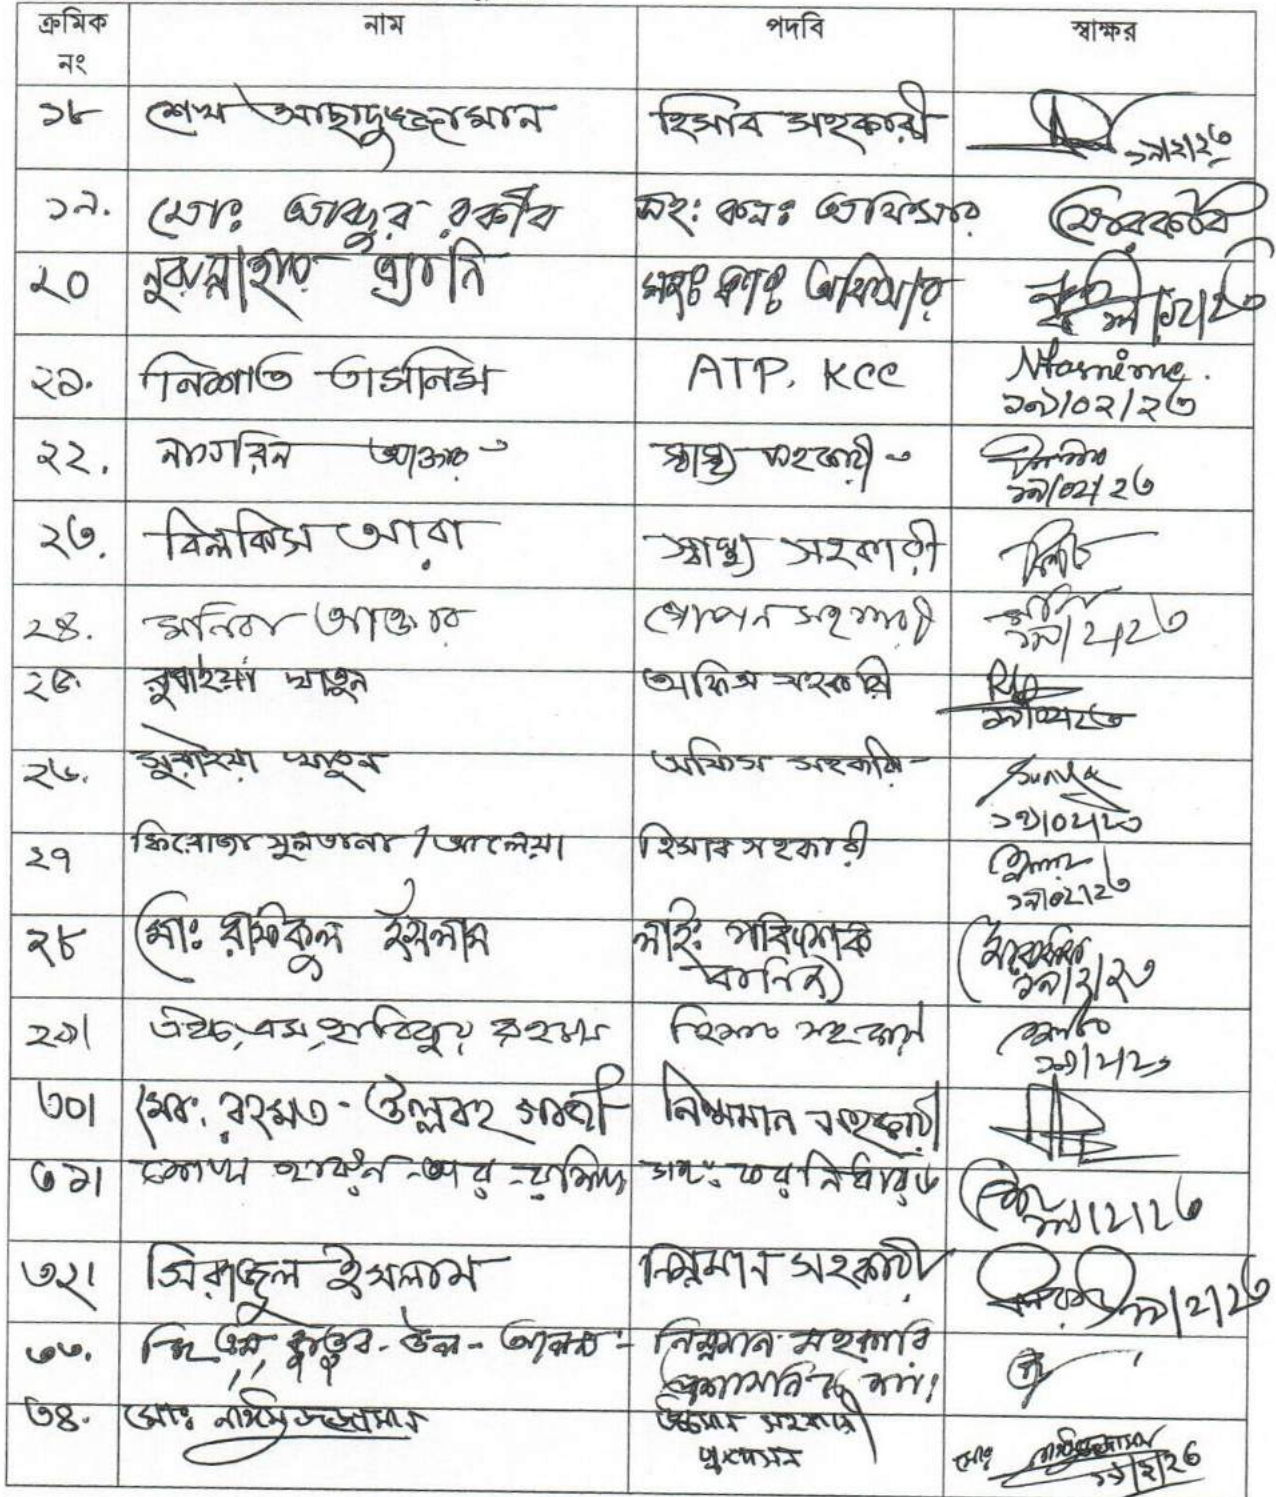 ক্রমিক নং নাম পদবি স্বাক্ষর
১৮ শেখ আছাদুজ্জামান হিসাব সহকারী ১৯/২/২৩
১৯. মোঃ আব্দুর রকীব সহঃ কনঃ অফিসার
২০ নুরুন্নাহার এ্যানি সহঃ কনঃ অফিসার
২১. নিশাত তাসনিম ATP, KCC Ntasnime. ১৯/০২/২৩
২২. নাসরিন আক্তার স্বাস্থ্য সহকারী ১৯/০২/২৩
২৩. বিলকিস আরা স্বাস্থ্য সহকারী
২৪. মনিরা আক্তার গোপন সহকারী ১৯/২/২৩
২৫. রুবাইয়া খাতুন অফিস সহকারি ১৯/০২/২৩
২৬. সুরাইয়া খাতুন অফিস সহকারি ১৯/০২/২৩
২৭ ফিরোজা সুলতানা / আলেয়া হিসাব সহকারী ১৯/০২/২৩
২৮ মোঃ রফিকুল ইসলাম লাইঃ পরিদর্শক ১৯/২/২৩
২৯। এইচ, এম, হাবিবুর রহমান হিসাব সহকারী ১৯/২/২৩
৩০। মোঃ রহমত উল্লাহ গাজী নিম্মমান সহকারী
৩১। শেখ হারুন-অর-রশিদ সহঃ কর নির্ধারক ১৯/২/২৩
৩২। সিরাজুল ইসলাম নিম্নমান সহকারী ১৯/২/২৩
৩৩. জি এম কুতুব-উল-আলম নিম্নমান সহকারি
৩৪. মোঃ উচ্চমান সহকারী ১৯/২/২৩